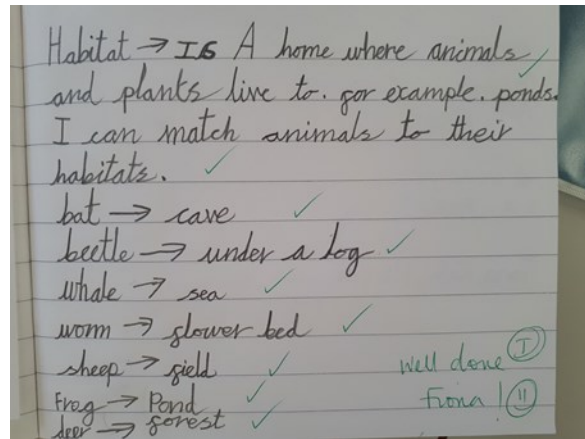 Habitat → Is A home where animals
and plants live to. for example. ponds.
I can match animals to their
habitats.
bat → cave
beetle → under a log
whale → sea
worm → flower bed
sheep → field
Frog → Pond
deer → forest
well done I
Fiona!